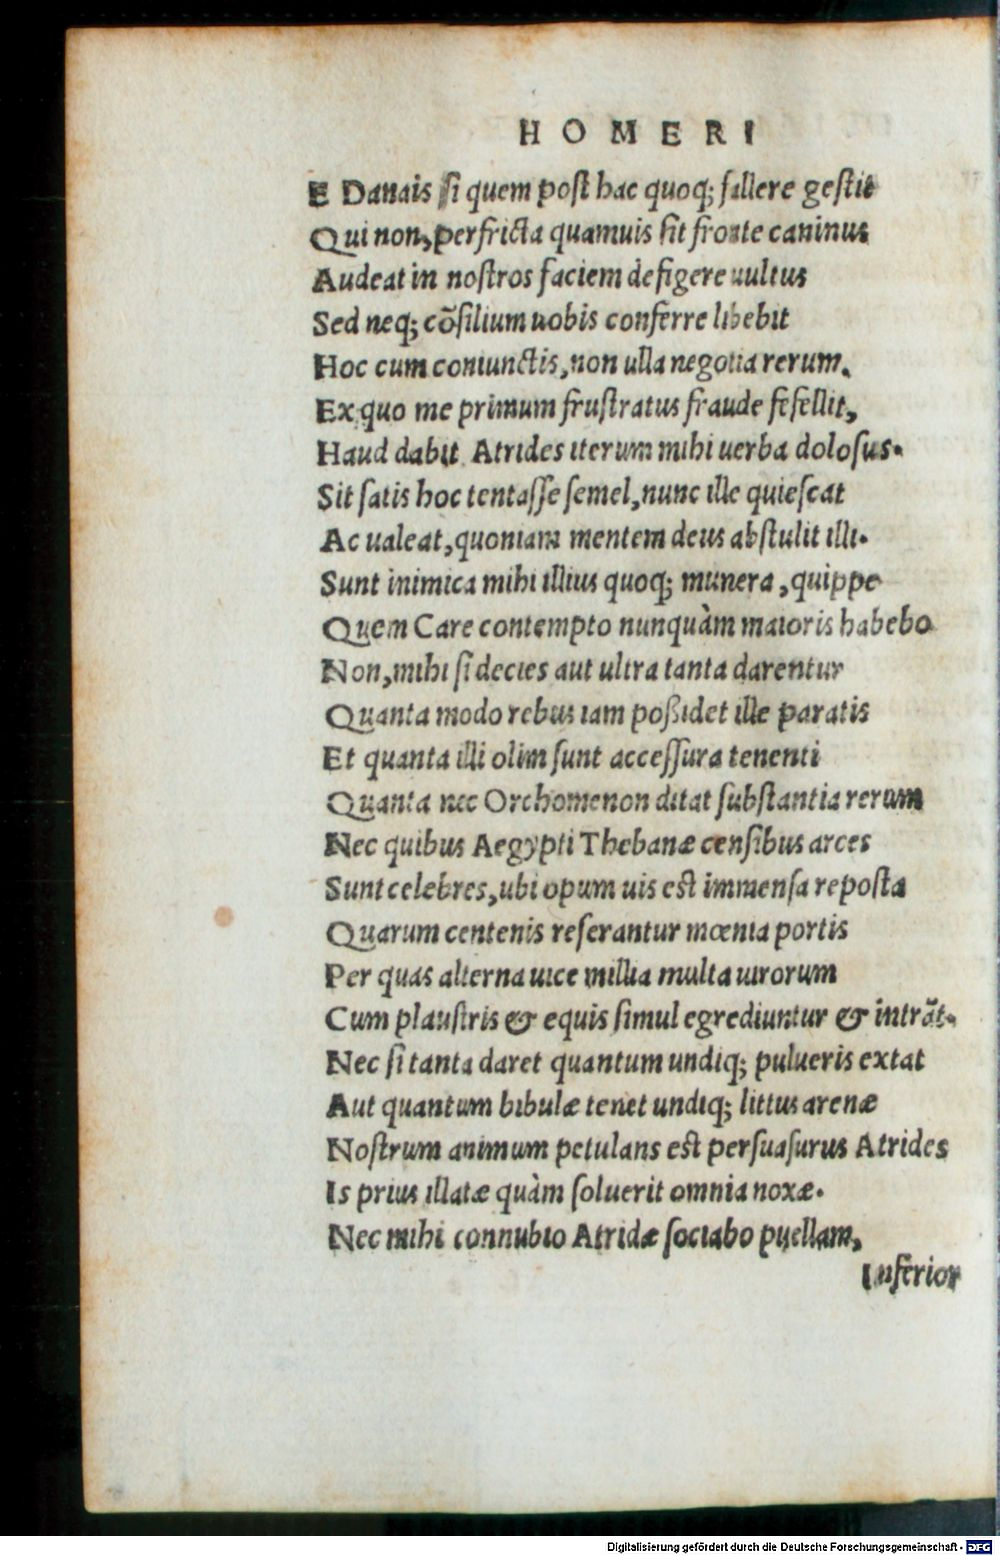 HOMERI
E Danais si quem post hac quoq; fallere gestit
Qui non, perfricta quamuis sit fronte caninus
Audeat in nostros faciem defigere uultus
Sed neq; cõsilium uobis conferre libebit
Hoc cum coniunctis, non ulla negotia rerum.
Ex quo me primum frustratus fraude fefellit,
Haud dabit Atrides iterum mihi uerba dolosus.
Sit satis hoc tentasse semel, nunc ille quiescat
Ac ualeat, quoniam mentem deus abstulit illi.
Sunt inimica mihi illius quoq; munera, quippe
Quem Care contempto nunquàm maioris habebo
Non, mihi si decies aut ultra tanta darentur
Quanta modo rebus iam poßidet ille paratis
Et quanta illi olim sunt accessura tenenti
Quanta nec Orchomenon ditat substantia rerum
Nec quibus Aegypti Thebanæ censibus arces
Sunt celebres, ubi opum uis est immensa reposta
Quarum centenis reserantur mœnia portis
Per quas alterna uice millia multa uirorum
Cum plaustris & equis simul egrediuntur & intrãt.
Nec si tanta daret quantum undiq; pulueris extat
Aut quantum bibulæ tenet undiq; littus arenæ
Nostrum animum petulans est persuasurus Atrides
Is prius illatæ quàm soluerit omnia noxæ.
Nec mihi connubio Atridæ sociabo puellam,
Inferior
Digitalisierung gefördert durch die Deutsche Forschungsgemeinschaft - DFG